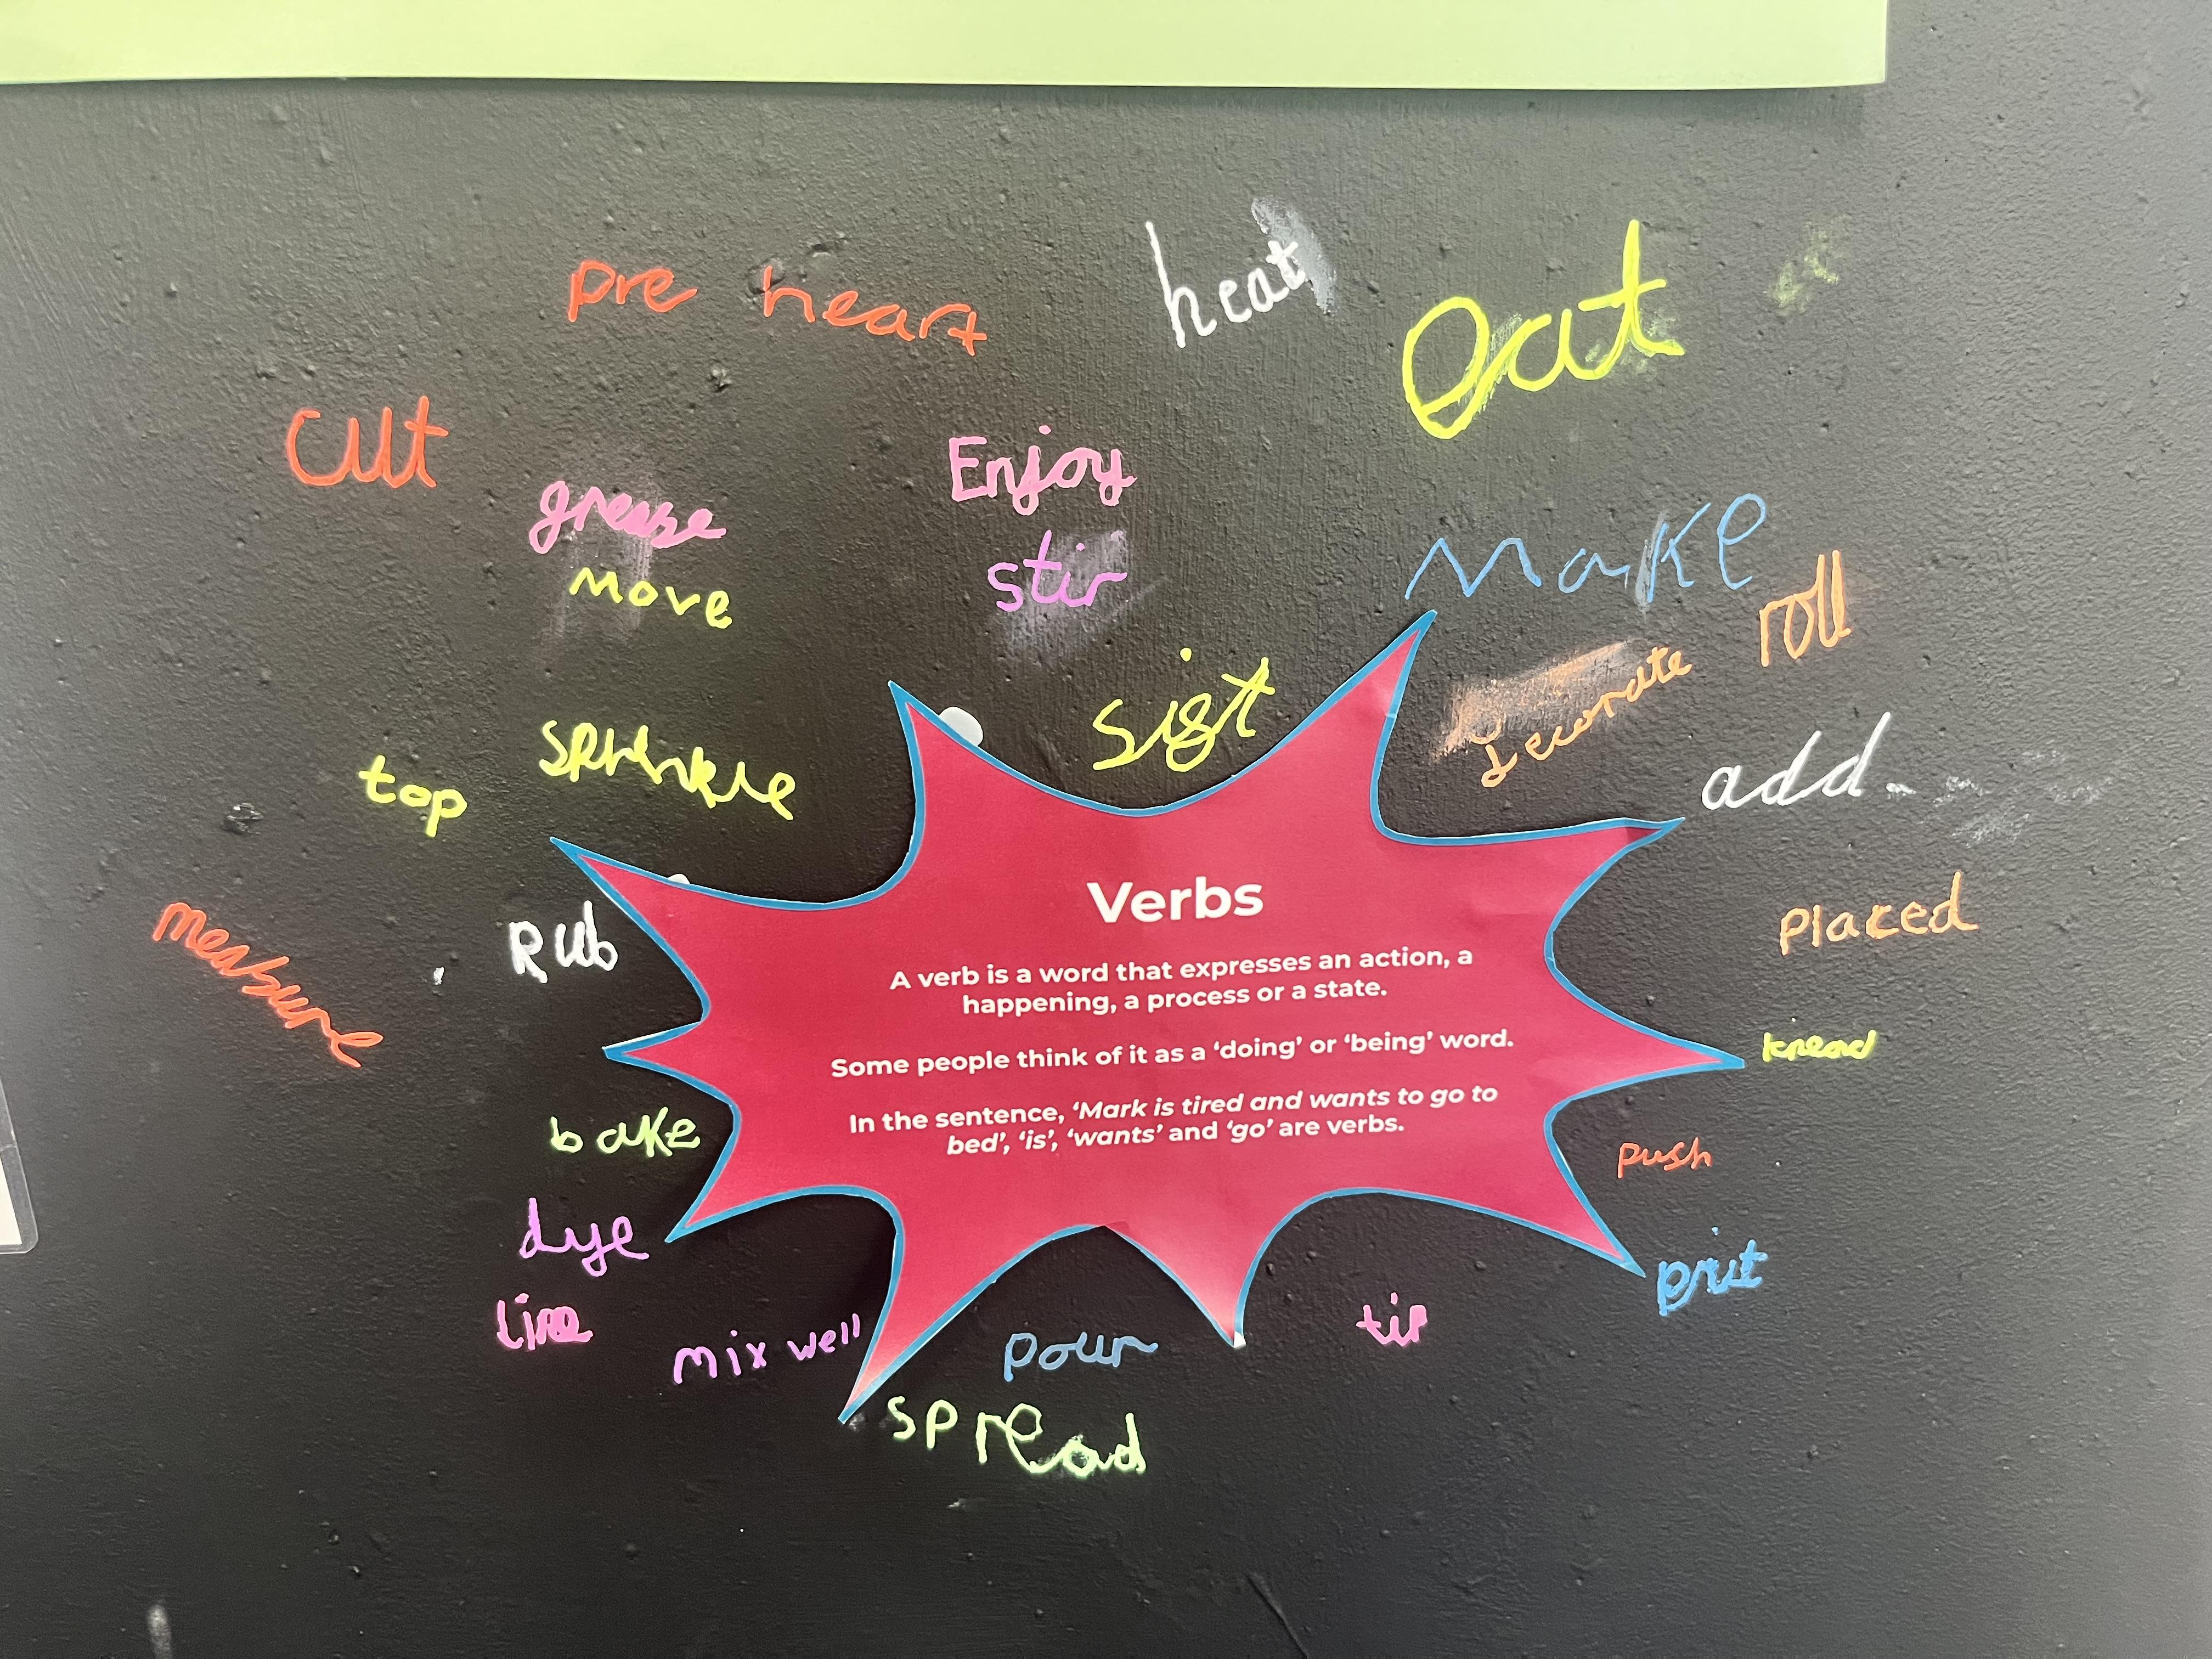 pre heart
heat
eat
cut
Enjoy
grease
make
stir
move
roll
decorate
sift
sprinkle
top
add
placed
measure
Rub
Verbs
A verb is a word that expresses an action, a
happening, a process or a state.
Some people think of it as a ‘doing’ or ‘being’ word.
In the sentence, ‘Mark is tired and wants to go to
bed’, ‘is’, ‘wants’ and ‘go’ are verbs.
knead
bake
push
dye
line
mix well
pour
tip
spread